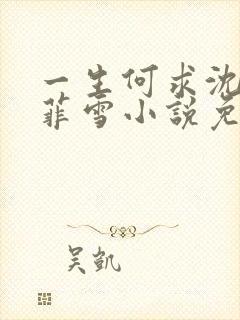 一生何求沈
菲雪小說免
吴凯